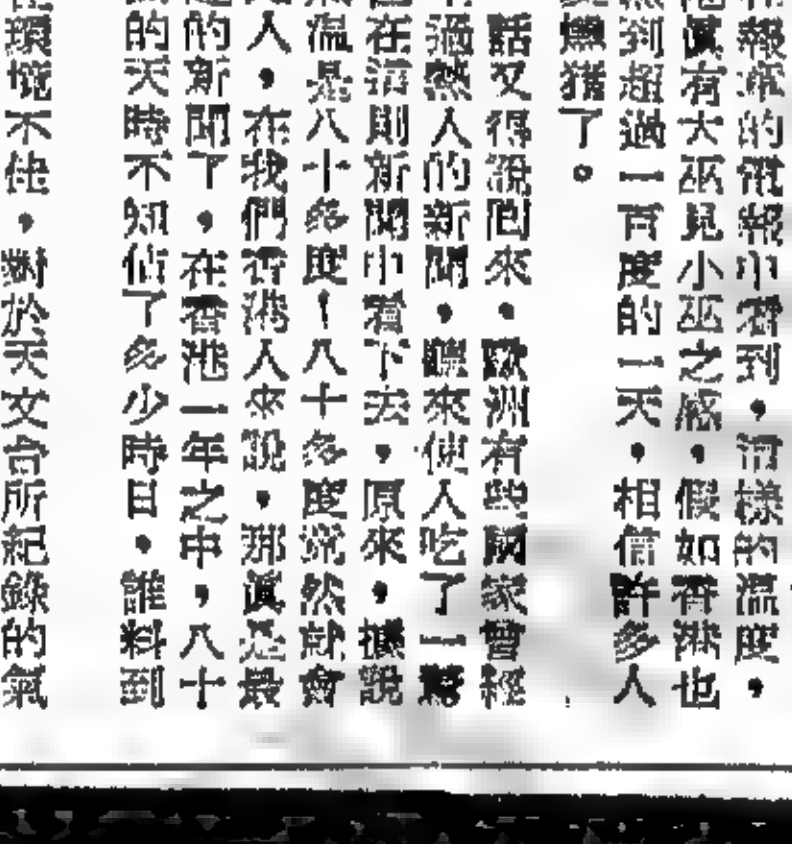 報章的電報中看到，這樣的溫度，
真有大巫見小巫之感，假如香港也
到超過一百度的一天，相信許多人
燻豬了。
話又得說回來，歐洲有些國家曾經
過熱人的新聞，聽來使人吃了一驚
在清則新聞中看下去，原來，據說
溫是八十多度！八十多度竟然就會
人，在我們香港人來說，那真是最
的新聞了，在香港一年之中，八十
的天時不知佔了多少時日，誰料到
環境不佳，對於天文台所紀錄的氣